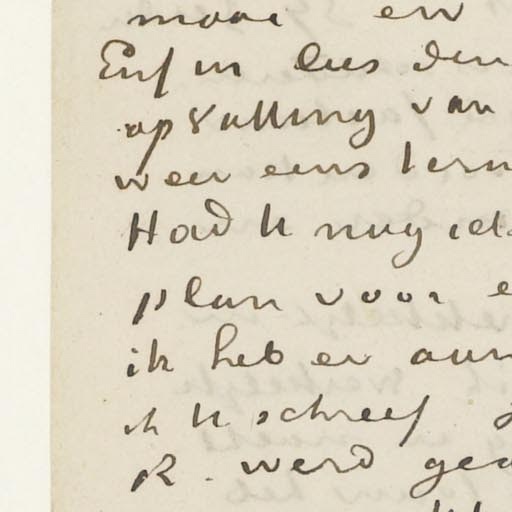 mooi en
Enfin lees den
opvatting van
weer eens tern
Had U nog ids
plan voor e
ik heb er aan
ik U schreef
R. werd gea